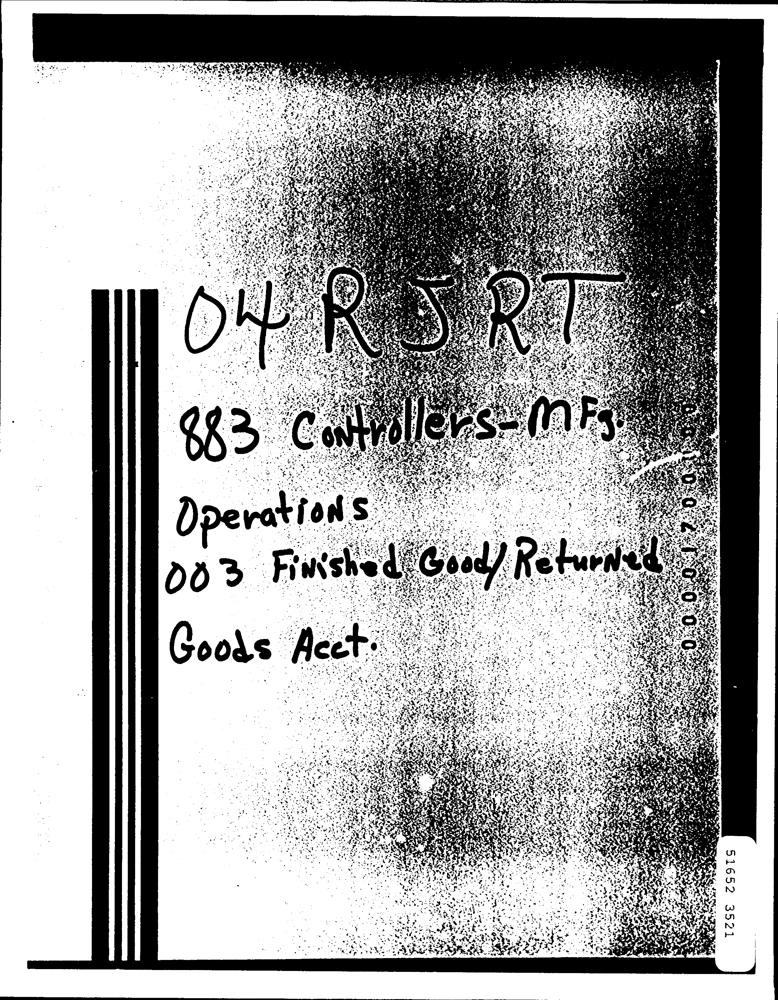 04 R J R T
883 Controllers-Mfg.
Operations
003 Finished Good/Returned
Goods Acct.
51652 3521